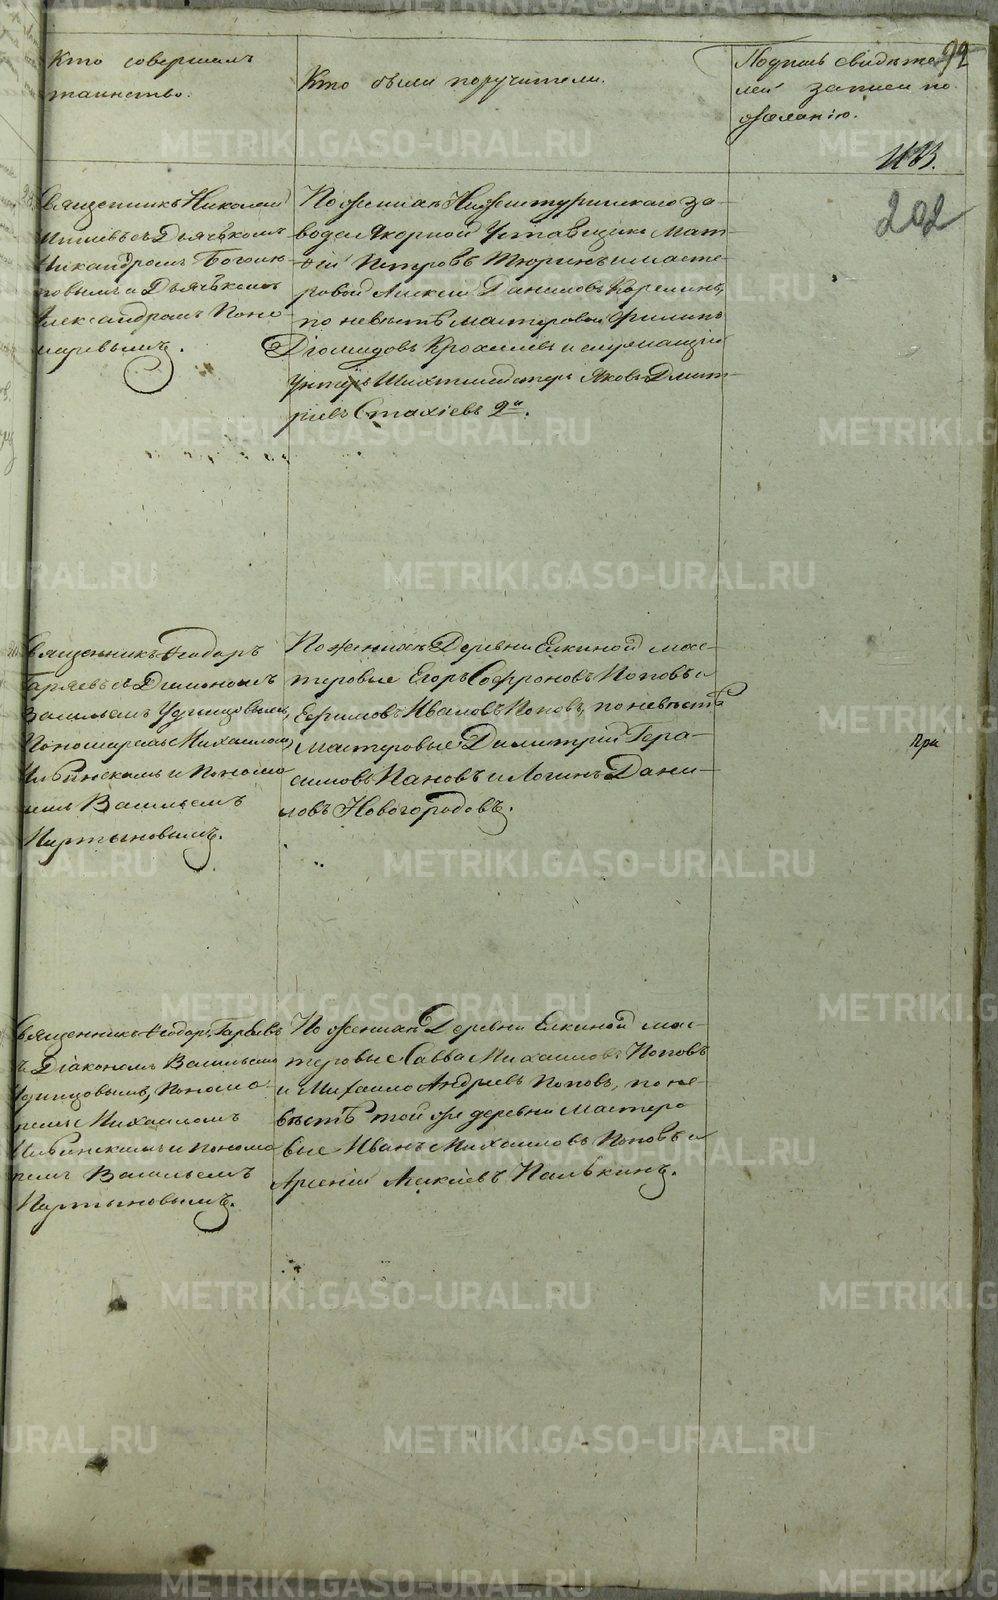 Кто совершалъ
таинство.
Кто были поручители.
Подпись свидѣте-
лей записи по
желанію.
92
202
Священникъ Николай
съ Дьячкомъ
Никандромъ
и Дьячкомъ
Александромъ Поно-
маревымъ.
По женихѣ Нижнетуринскаго за-
вода Якорной Уставщикъ Мат-
ѳей Петровъ Тюринъ и масте-
ровой Алексѣй Даниловъ Карелинъ,
по невѣстѣ мастеровой Филипъ
Діомидовъ Крохалевъ и служащій
Унтеръ Шихтмейстеръ Яковъ Дмит-
ріевъ Стахіевъ 2й.
Священникъ Ѳеодоръ
Гаряевъ съ Діакономъ
Васильемъ Удинцовымъ,
Пономаремъ Михаиломъ
и Понома-
ремъ Васильемъ
Мартыновымъ.
По женихѣ Деревни Елкиной мас-
теровые Егоръ Софроновъ Поповъ и
Ефимовъ Ивановъ Поповъ, по невѣстѣ
Мастеровые Димитрій Гера-
симовъ Пановъ и Логинъ Дани-
ловъ Новогородовъ.
При
Священникъ Ѳеодоръ Гаряевъ
съ Діакономъ Васильемъ
Удинцовымъ, Понома-
ремъ Михаиломъ
и понома-
ремъ Васильемъ
Мартыновымъ.
По женихѣ Деревни Елкиной мас-
теровые Савва Михаиловъ Поповъ
и Михаило Андреевъ Поповъ, по не-
вѣстѣ той же деревни мастеро-
вые Иванъ Михаиловъ Поповъ и
Арсеній Палькинъ.
METRIKI.GASO-URAL.RU